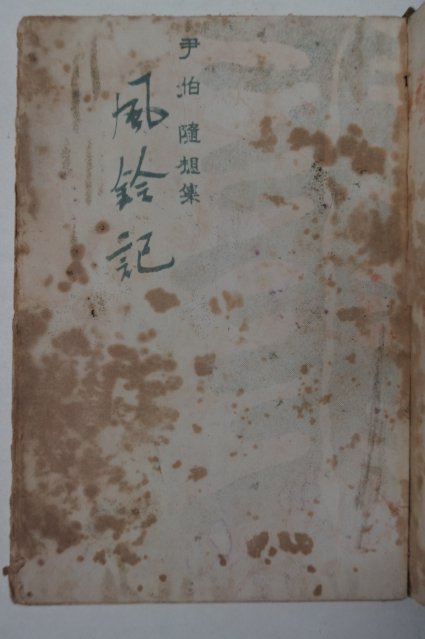 尹柏隨想集
風鈴記